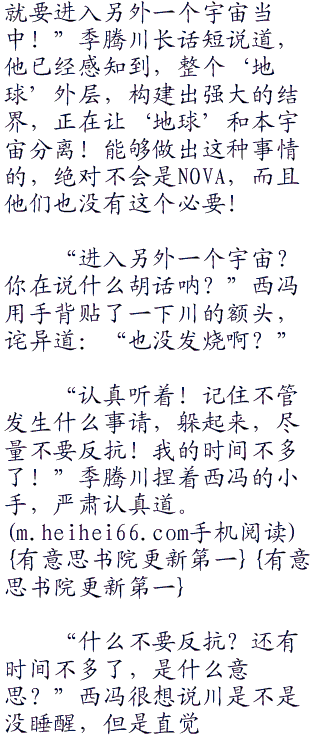 就要进入另外一个宇宙当
中！”季腾川长话短说道，
他已经感知到，整个‘地
球’外层，构建出强大的结
界，正在让‘地球’和本宇
宙分离！能够做出这种事情
的，绝对不会是NOVA，而且
他们也没有这个必要！
“进入另外一个宇宙？
你在说什么胡话呐？”西冯
用手背贴了一下川的额头，
诧异道：“也没发烧啊？”
“认真听着！记住不管
发生什么事请，躲起来，尽
量不要反抗！我的时间不多
了！”季腾川捏着西冯的小
手，严肃认真道。
(m.heihei66.com手机阅读)
{有意思书院更新第一}{有意
思书院更新第一}
“什么不要反抗？还有
时间不多了，是什么意
思？”西冯很想说川是不是
没睡醒，但是直觉